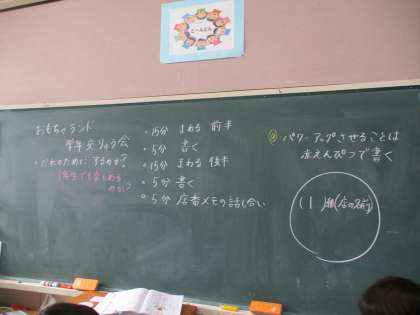 おもちゃランド
学年交りゅう会
・だれのためにするのか?
1年生でも楽しめるのか?
・15分 まわる 前半
・5分 書く
・15分 まわる 後半
・5分 書く
・5分 店番メモの話し合い
パワーアップさせることは
赤えんぴつで書く
(1)組(店の名前)